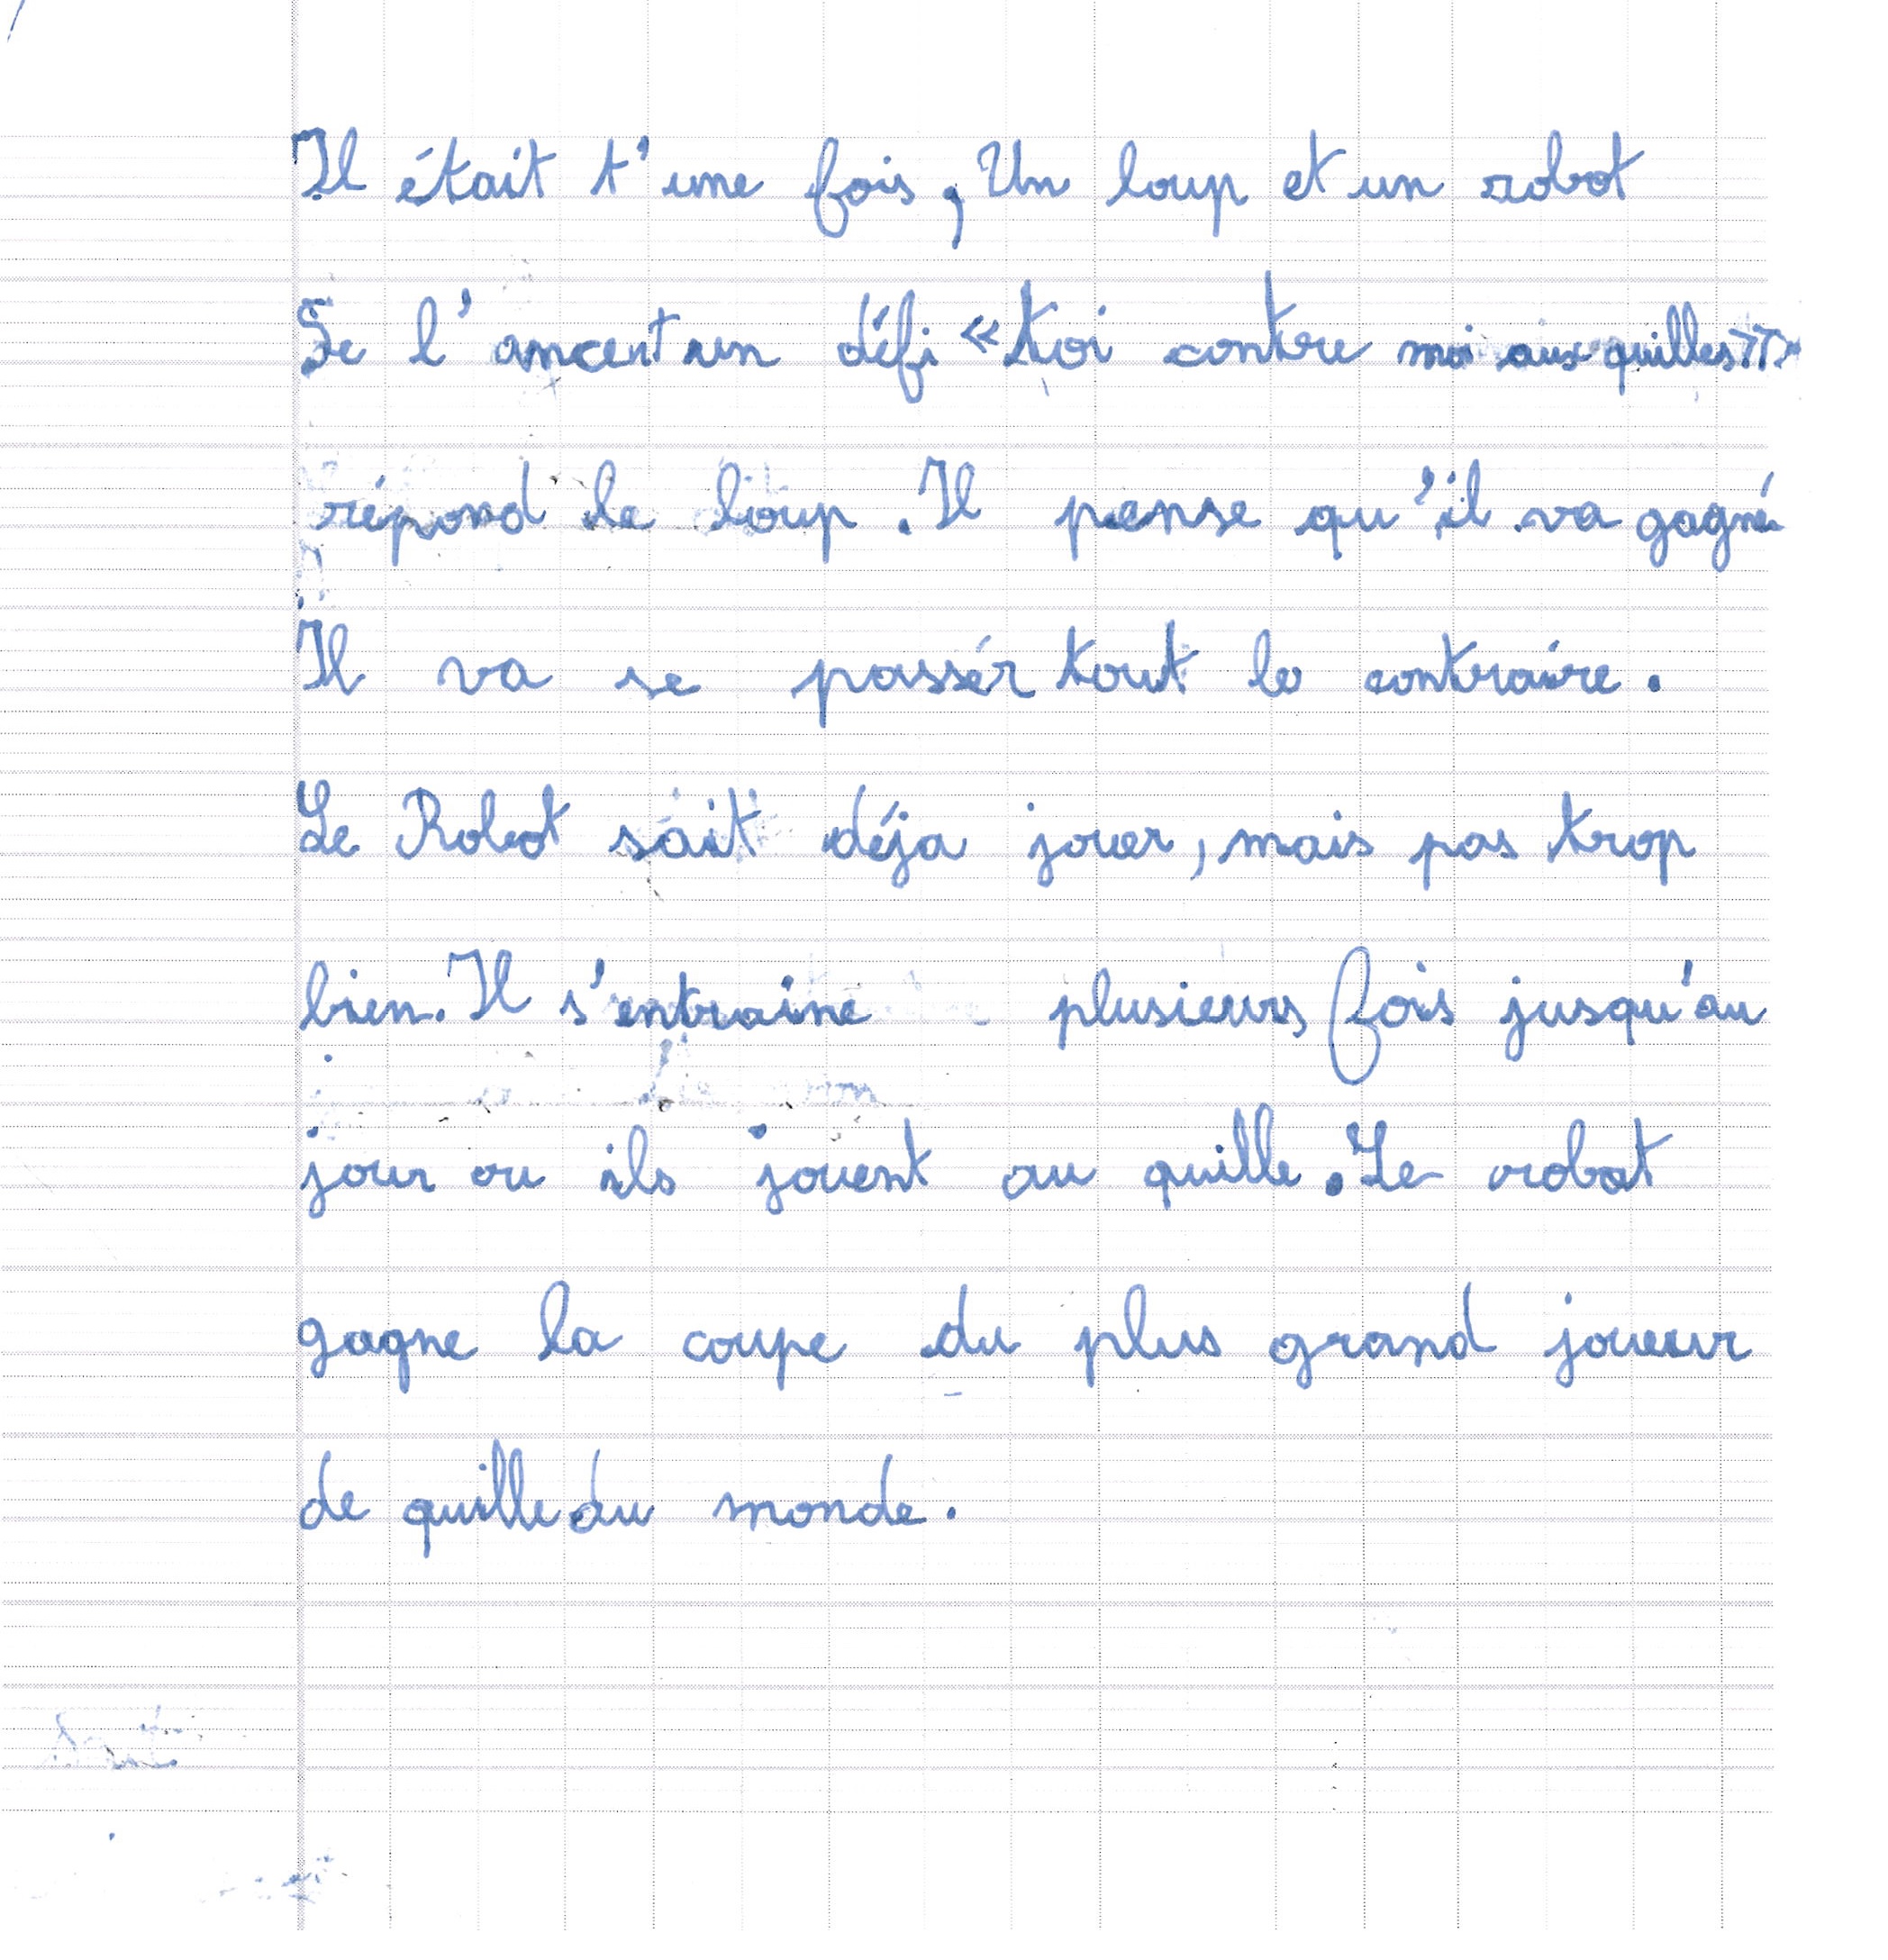 Il était t'une fois, Un loup et un robot
Se l'ancent un défi « toi contre moi aux quilles »
répond le loup. Il pense qu'il va gagné
Il va se passér tout le contraire.
Le Robot sait déja jouer, mais pas trop
bien. Il s'entraine plusieurs fois jusqu'au
jour ou ils jouent au quille. Le robot
gagne la coupe du plus grand joueur
de quille du monde.